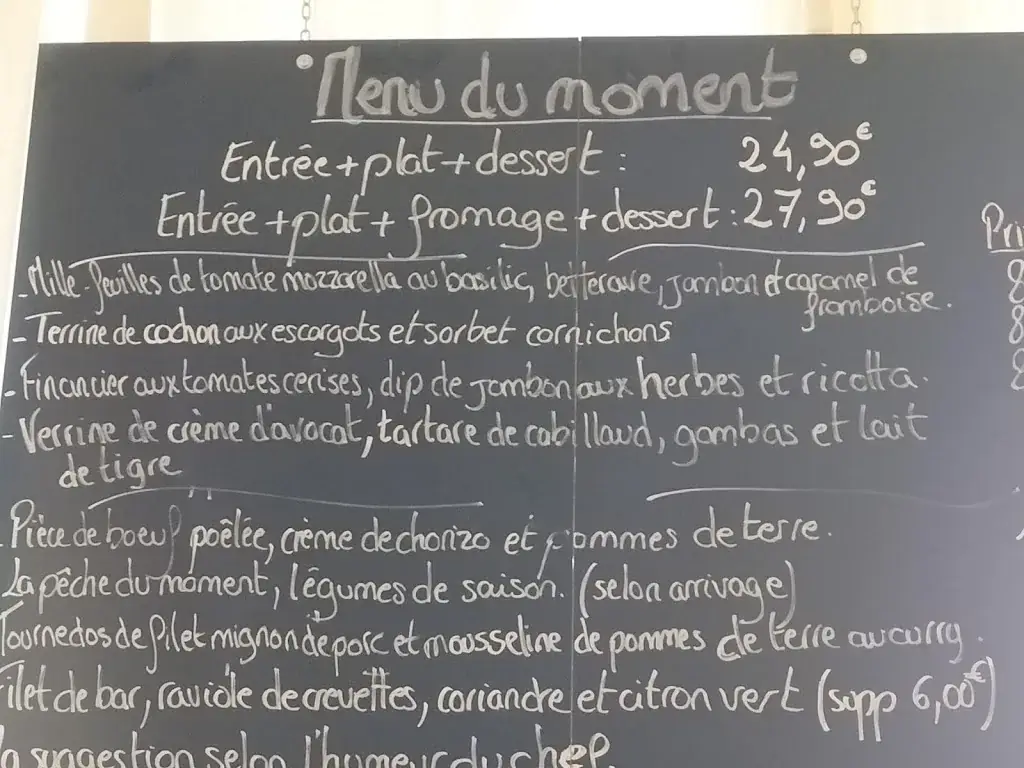 Menu du moment
Entrée+plat+dessert : 24,90€
Entrée+plat+fromage+dessert : 27,90€
- Mille-feuilles de tomate mozzarella au basilic, betterave, jambon et caramel de
framboise.
- Terrine de cochon aux escargots et sorbet cornichons
- Financier aux tomates cerises, dip de jambon aux herbes et ricotta.
- Verrine de crème d'avocat, tartare de cabillaud, gambas et lait
de tigre
Pièce de boeuf poêlée, crème de chorizo et pommes de terre.
La pêche du moment, légumes de saison. (selon arrivage)
Tournedos de filet mignon de porc et mousseline de pommes de terre au curry.
Filet de bar, raviole de crevettes, coriandre et citron vert (supp 6,00€)
la suggestion selon l'humeur du chef.